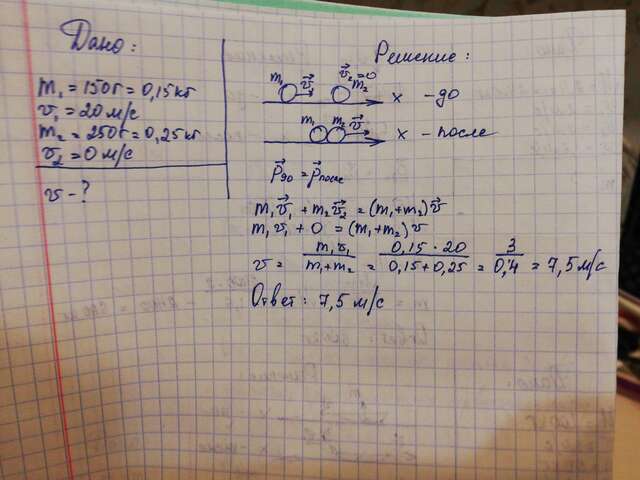 Дано:
m₁ = 150г = 0,15кг
v₁ = 20 м/с
m₂ = 250г = 0,25кг
v₂ = 0 м/с
v - ?
Решение:
m₁ v⃗ v⃗₂=0 m₂
x - до
m₁ m₂ v⃗
x - после
p⃗до = p⃗после
m₁v⃗₁ + m₂v⃗₂ = (m₁+m₂)v⃗
m₁v₁ + 0 = (m₁+m₂)v
v = m₁v₁/m₁+m₂ = 0,15 · 20/0,15+0,25 = 3/0,4 = 7,5 м/с
Ответ: 7,5 м/с